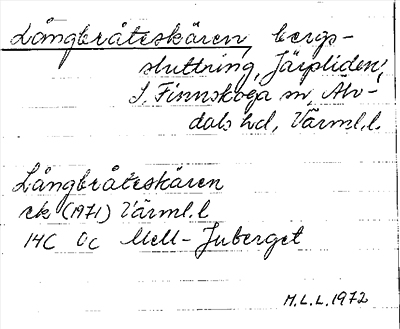 Långbråteskären, bergs-
sluttning, Järpliden,
S. Finnskoga sn, Älv-
dals hd, Värml.l.
Långbråteskären
ek (1971) Värml.l
14C 0c Mell-Juberget
M.L.L. 1972